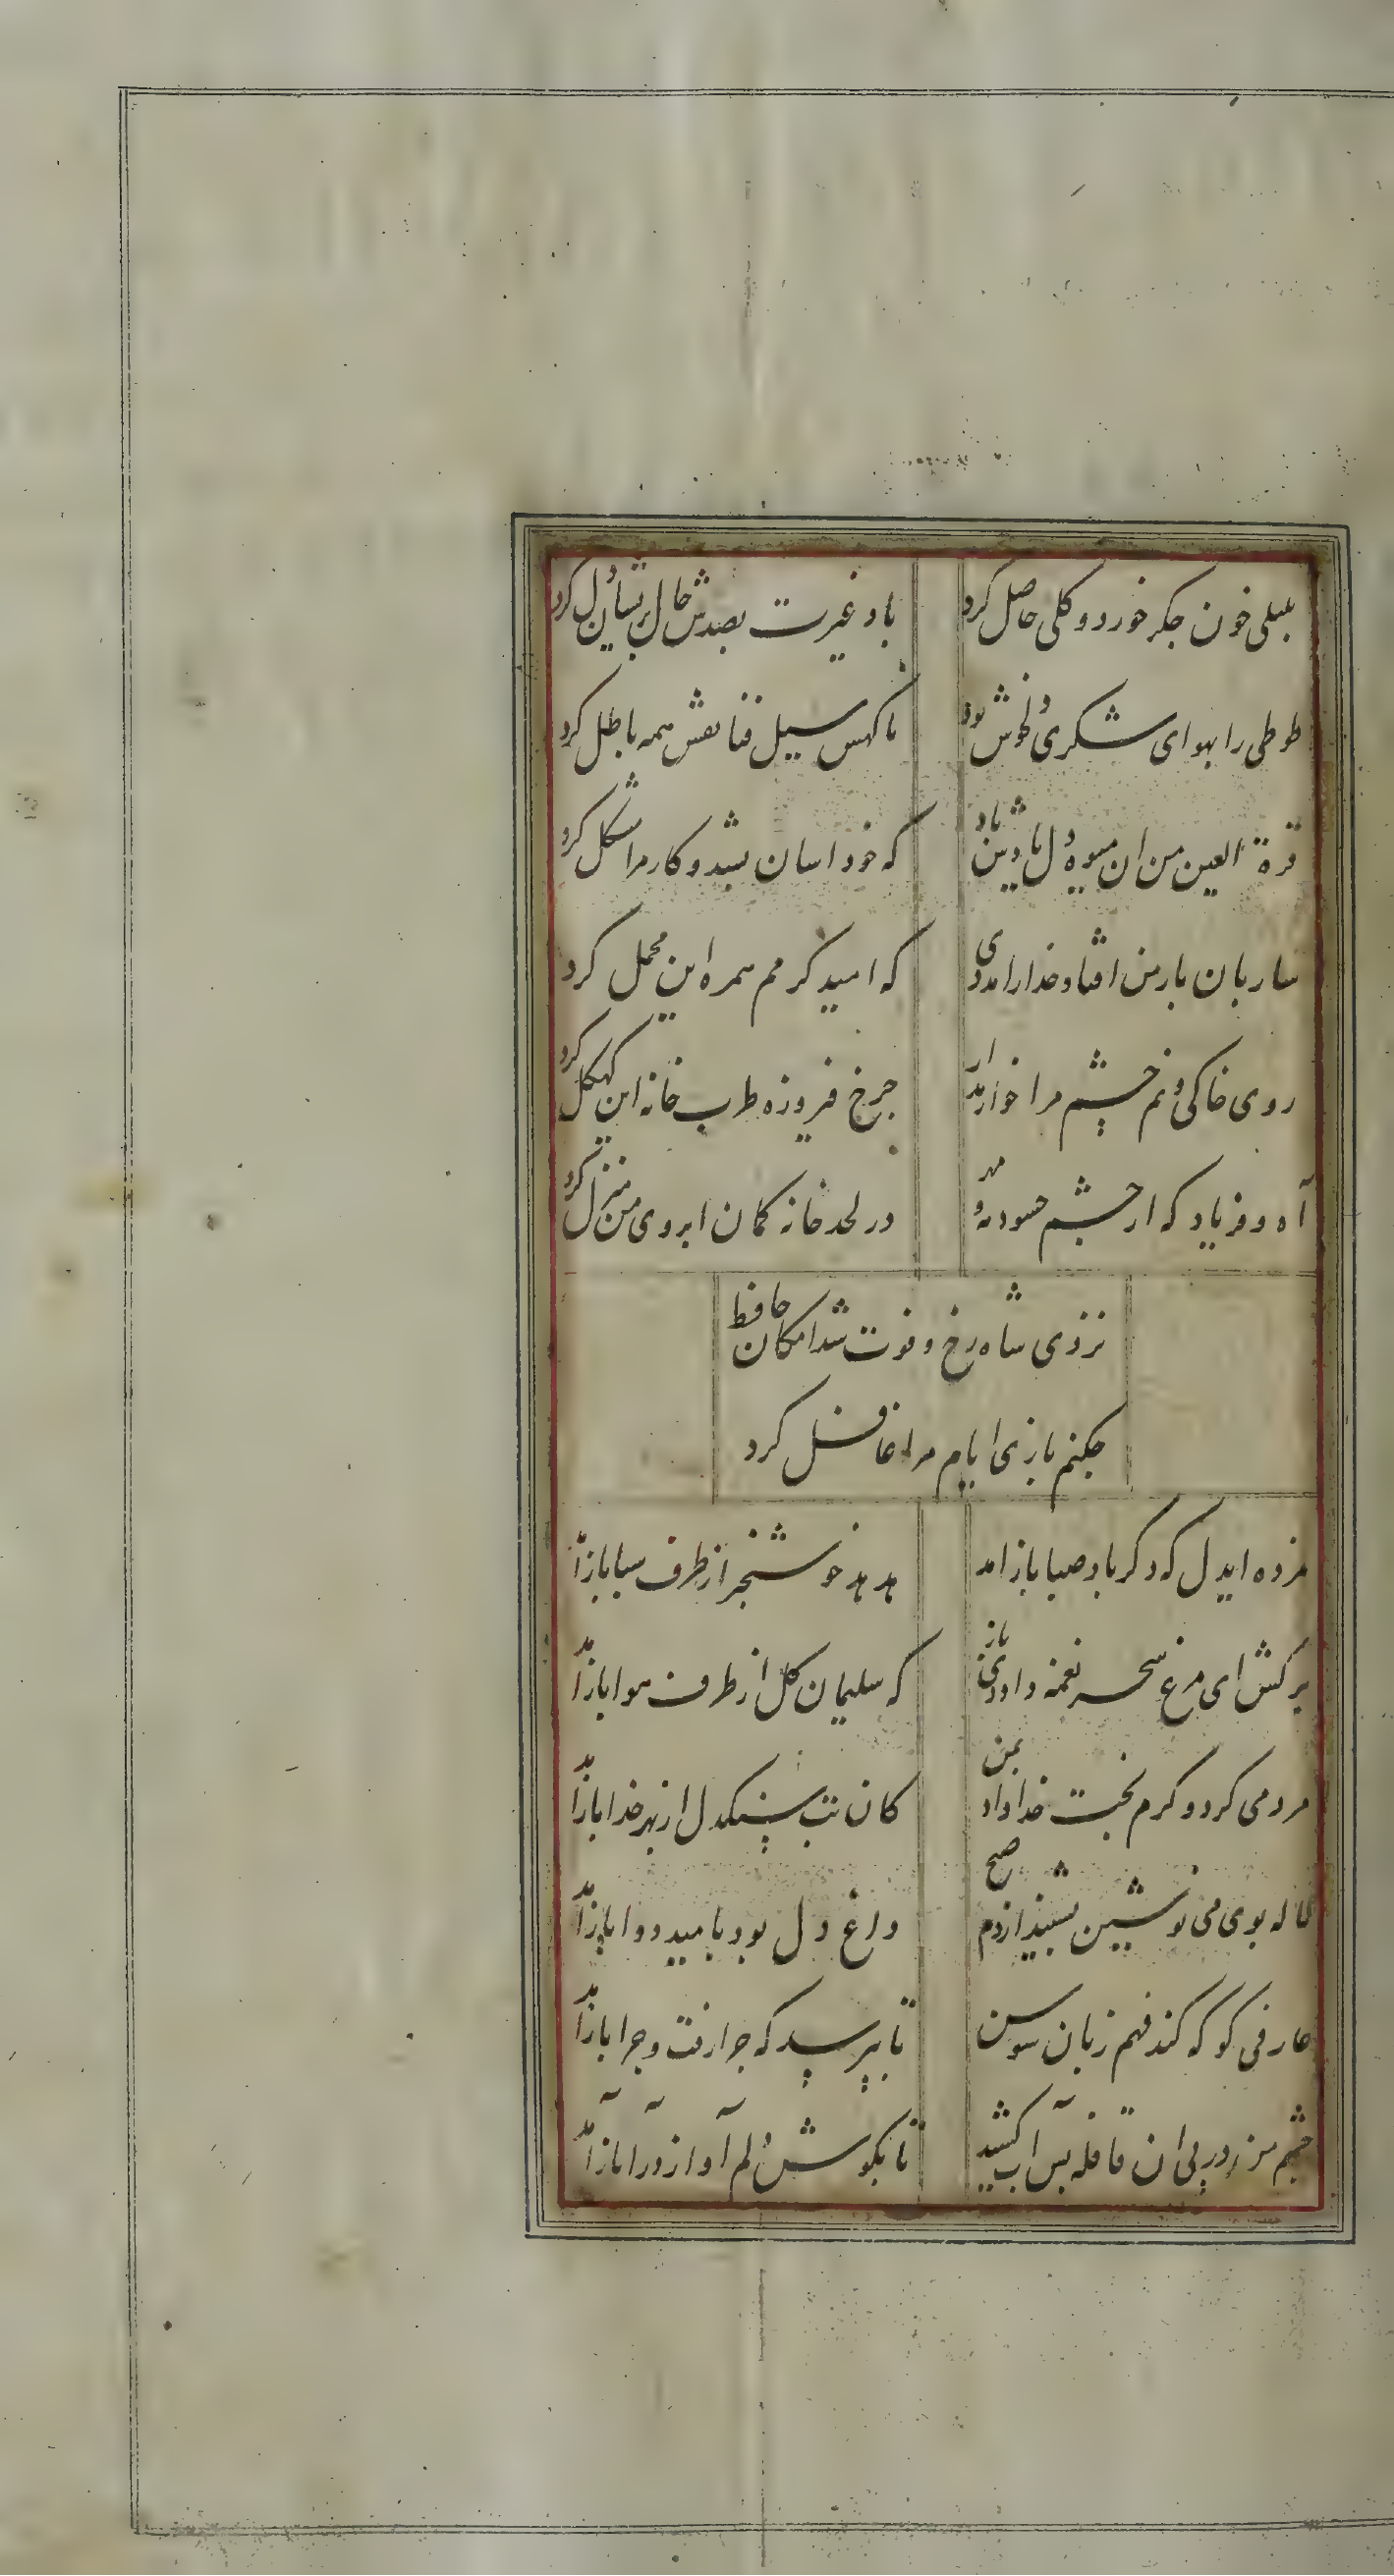 بلبلی خون جکر خورد و کلی حاصل کرد
باد غیرت بصدش خار پریشان دل کرد
طوطی را بهوای شکری دلخوش بود
ناکهش سیل فنا نقش همه باطل کرد
قرة العین من ان میوه دل یادش باد
که خود اسان بشد و کار مرا مشکل کرد
ساربان بار من افتاد خدا را مددی
که امید کرمم همره این محمل کرد
روی خاکی و نم چشم مرا خوار مدار
چرخ فیروزه طرب خانه ازین کهکل کرد
آه و فریاد که از چشم حسود مه و مهر
در لحد خانه کمان ابروی من منزل کرد
نزدی شاه رخ و فوت شد امکان حافظ
چکنم بازی ایام مرا غافل کرد
مژده ایدل که دکر باد صبا باز امد
هدهد خوشخبر از طرف سبا باز آمد
برکش ای مرغ سحر نغمه داودی باز
که سلیمان کل از طرف هوا باز آمد
مردمی کرد و کرم بخت خداداد بمن
کان بت سنکدل از بهر خدا باز آمد
لاله بوی می نوشین بشنید از دم صبح
داغ دل بود بامید دوا باز آمد
عارفی کو که کند فهم زبان سوسن
تا بپرسد که چرا رفت و چرا باز آمد
چشم من در پی ان قافله بس آب کشید
تا بکوش دلم آواز درا باز آمد